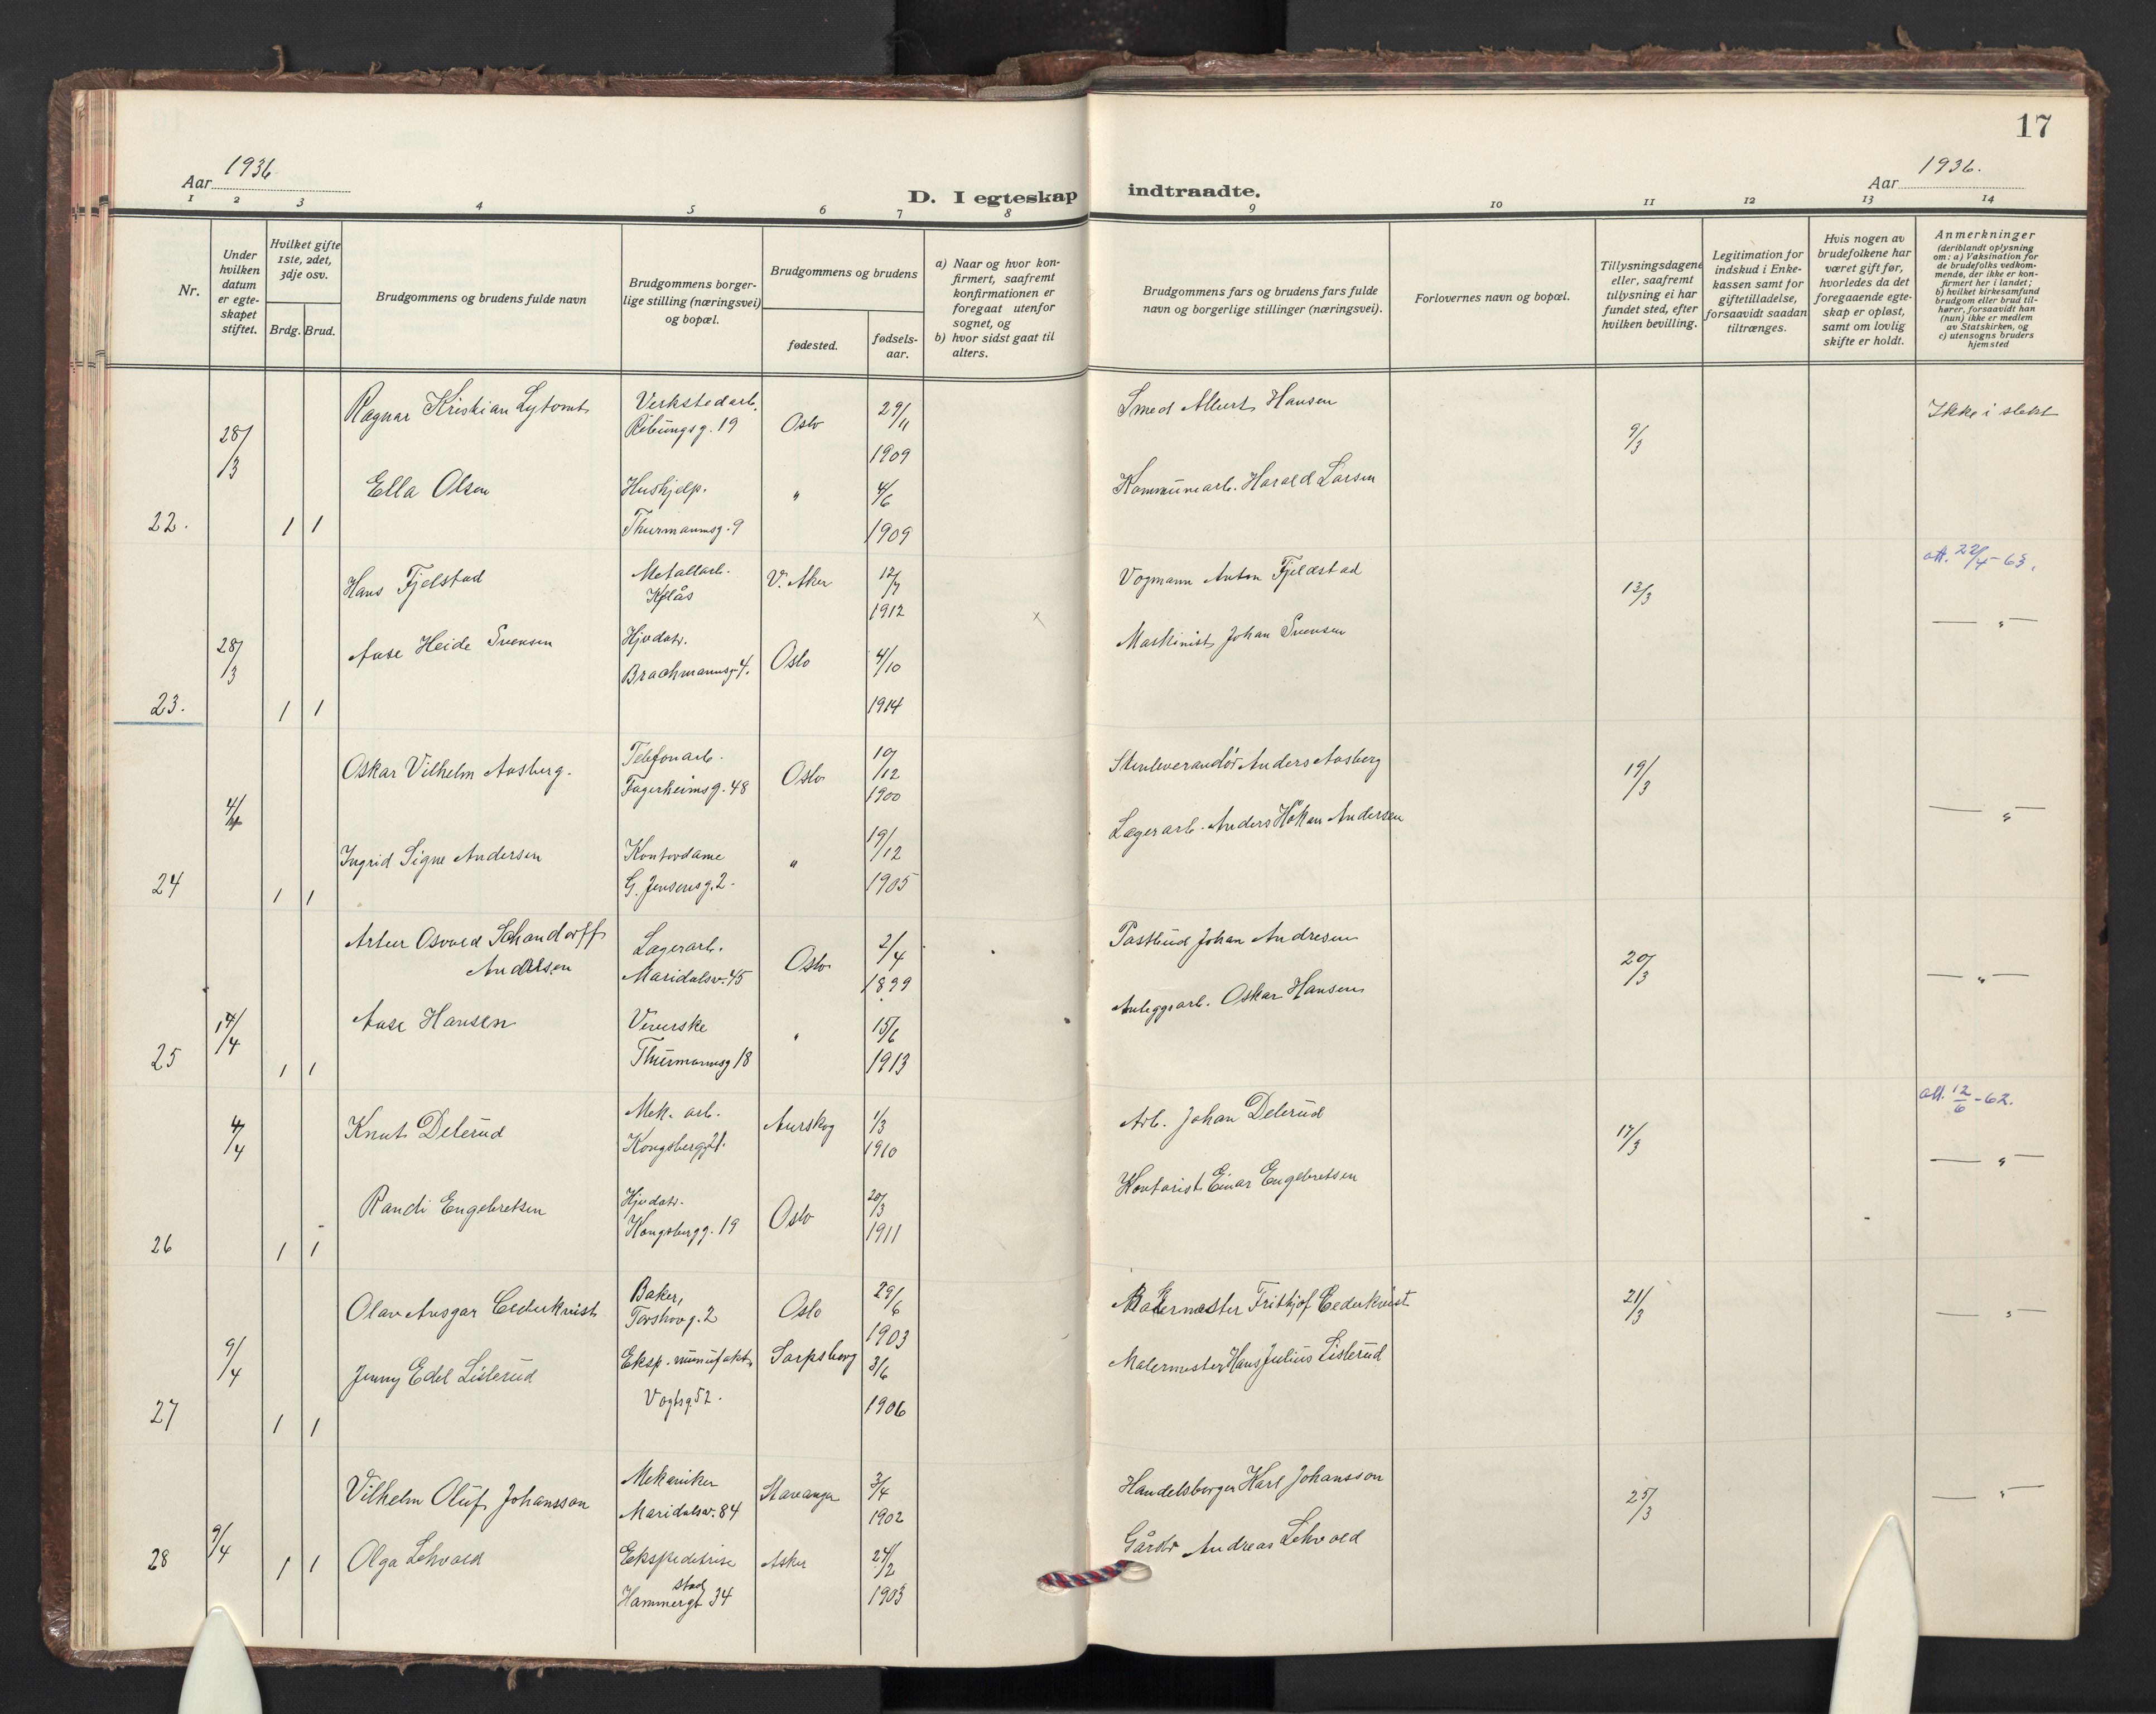 17
Aar 1936
D. I egteskap indtraadte.
Aar 1936.
1 2 3 4 5 6 7 8 9 10 11 12 13 14
Nr.
Under hvilken datum er egteskapet stiftet.
Hvilket gifte 1ste, 2det, 3dje osv.
Brdg. Brud.
Brudgommens og brudens fulde navn
Brudgommens borgerlige stilling (næringsvei) og bopæl.
Brudgommens og brudens
fødested.
fødselsaar.
a) Naar og hvor konfirmert, saafremt konfirmationen er foregaat utenfor sognet, og
b) hvor sidst gaat til alters.
Brudgommens fars og brudens fars fulde navn og borgerlige stillinger (næringsvei).
Forlovernes navn og bopæl.
Tillysningsdagene eller, saafremt tillysning ei har fundet sted, efter hvilken bevilling.
Legitimation for indskud i Enkekassen samt for giftetilladelse, forsaavidt saadan tiltrænges.
Hvis nogen av brudefolkene har været gift før, hvorledes da det foregaaende egteskap er opløst, samt om lovlig skifte er holdt.
Anmerkninger
(deriblandt oplysning om: a) Vaksination for de brudefolks vedkommende, der ikke er konfirmert her i landet; b) hvilket kirkesamfund brudgom eller brud tilhører, forsaavidt han (hun) ikke er medlem av Statskirken, og c) utensogns bruders hjemsted
28/3 Ragnar Kristian Lytomt Verkstedarb. Ribungsg. 19 Oslo 29/11 1909 Smed Albert Hansen 9/3 Ikke i slekt
22. 1 1 Ella Olsen Hushjelp. Thurmannsg. 9 " 4/6 1909 Kommunearb. Harald Larsen
Hans Fjelstad Metallarb. Kjelsås V. Aker 12/7 1912 Vognmann Anton Fjeldstad 13/3 att. 22/4-63.
28/3 Aase Heide Svensen Hjvdatr. Brochmannsg. 4. Oslo 4/10 1914 Maskinist Johan Svensen — " —
23. 1 1
Oskar Vilhelm Aasberg. Telefonarb. Fagerheimsg. 48 Oslo 10/12 1900 Stenleverandør Anders Aasberg 19/3
4/4 Ingrid Signe Andersen Kontordame G. Jensensg. 2. " 19/12 1905 Lagerarb. Anders Håkan Andersen — " —
24 1 1
Artur Osvald Schandorff Andersen Lagerarb. Maridalsv. 45 Oslo 2/4 1899 Postbud Johan Andresen 20/3 — " —
14/4 Aase Hansen Veverske Thurmannsg 18 " 15/6 1913 Anleggsarb. Oskar Hansen
25 1 1
4/4 Knut Delerud Mek. arb. Kongsbergg. 21. Aurskog 1/3 1910 Arb. Johan Delerud 17/3 att. 12/6-62.
Randi Engebretsen Hjvdatr. Kongsbergg. 19 Oslo 20/3 1911 Kontorist Einar Engebretsen — " —
26 1 1
Olav Ansgar Cederkvist Baker, Torshovg. 2 Oslo 29/6 1903 Bakermester Frithjof Cederkvist 21/3 — " —
9/4 Jenny Edel Listerud Eksp. manufakt. Vogtsg. 52. Sarpsborg 3/6 1906 Malermester Hans Julius Listerud
27 1 1
Vilhelm Oluf Johansson Mekaniker Maridalsv. 84 Stavanger 3/4 1902 Handelsborger Karl Johansson 25/3 — " —
28 9/4 1 1 Olga Lehvold Ekspeditrise Hammerstadgt 34 Asker 24/2 1903 Gårdbr Andreas Lehvold